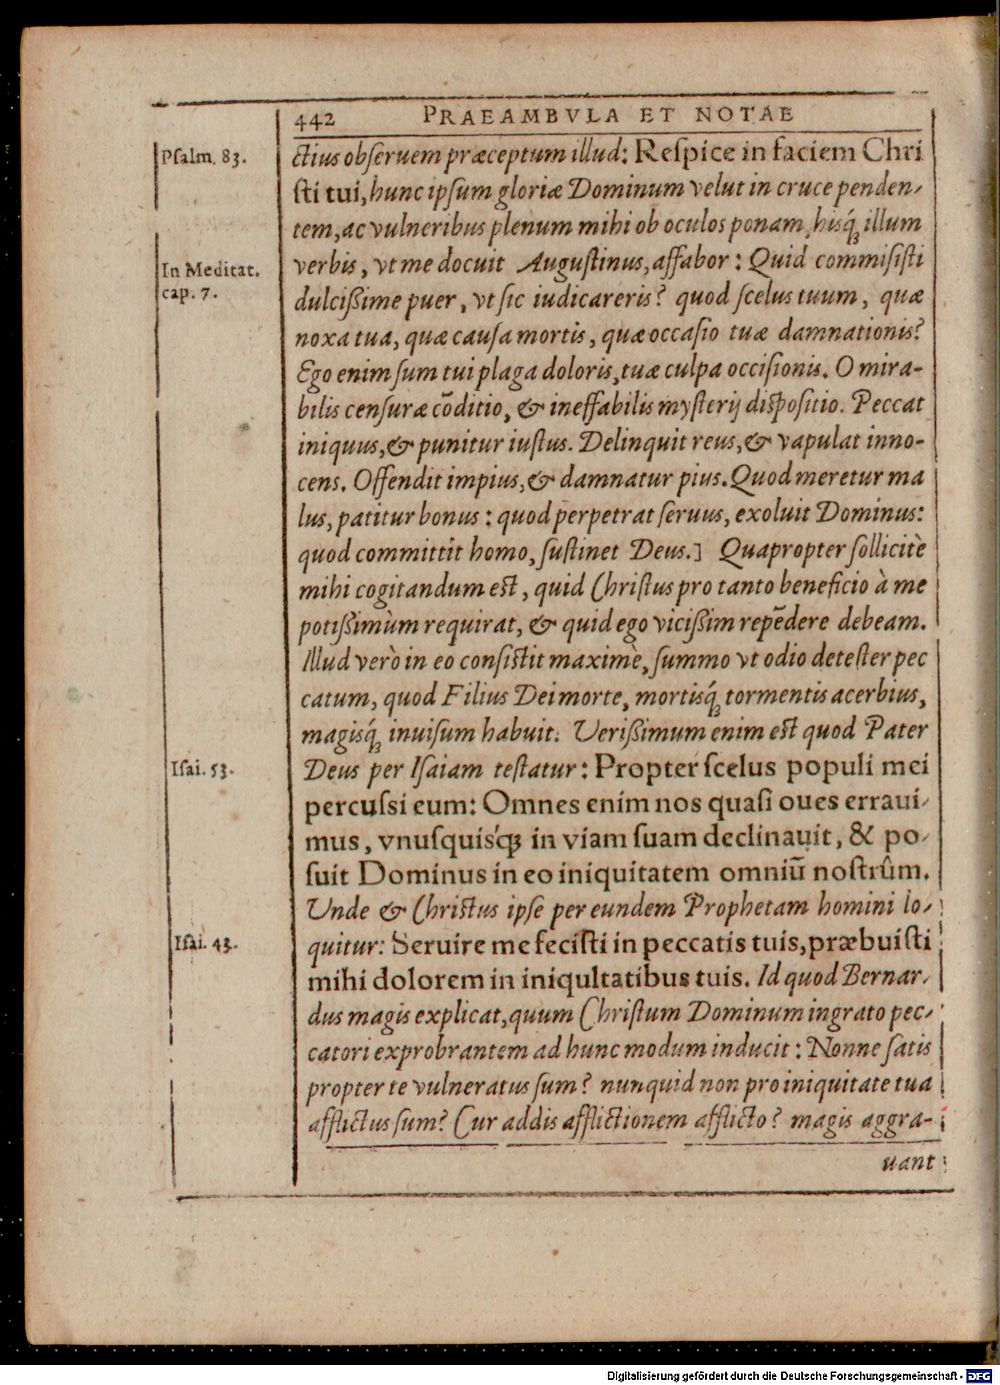 442 PRAEAMBVLA ET NOTAE
Psalm. 83.
ctius obseruem præceptum illud: Respice in faciem Chri
sti tui, hunc ipsum gloriæ Dominum velut in cruce penden-
tem, ac vulneribus plenum mihi ob oculos ponam, hisq́; illum
In Meditat.
cap. 7.
verbis, vt me docuit Augustinus, affabor: Quid commisisti
dulcißime puer, vt sic iudicareris? quod scelus tuum, quæ
noxa tua, quæ causa mortis, quæ occasio tuæ damnationis?
Ego enim sum tui plaga doloris, tuæ culpa occisionis. O mira-
bilis censuræ cõditio, & ineffabilis mysterij dispositio. Peccat
iniquus, & punitur iustus. Delinquit reus, & vapulat inno-
cens. Offendit impius, & damnatur pius. Quod meretur ma
lus, patitur bonus: quod perpetrat seruus, exoluit Dominus:
quod committit homo, sustinet Deus.] Quapropter sollicitè
mihi cogitandum est, quid Christus pro tanto beneficio à me
potißimùm requirat, & quid ego vicißim repẽdere debeam.
Illud verò in eo consistit maximè, summo vt odio detester pec
catum, quod Filius Dei morte, mortisq́; tormentis acerbius,
magisq́; inuisum habuit. Verißimum enim est quod Pater
Isai. 53.
Deus per Isaiam testatur: Propter scelus populi mei
percussi eum: Omnes enim nos quasi oues erraui-
mus, vnusquisq́; in viam suam declinauit, & po-
suit Dominus in eo iniquitatem omniũ nostrûm.
Unde & Christus ipse per eundem Prophetam homini lo-
Isai. 43.
quitur: Seruire me fecisti in peccatis tuis, præbuisti
mihi dolorem in iniqultatibus tuis. Id quod Bernar-
dus magis explicat, quum Christum Dominum ingrato pec-
catori exprobrantem ad hunc modum inducit: Nonne satis
propter te vulneratus sum? nunquid non pro iniquitate tua
afflictus sum? Cur addis afflictionem afflicto? magis aggra-
uant
Digitalisierung gefördert durch die Deutsche Forschungsgemeinschaft - DFG